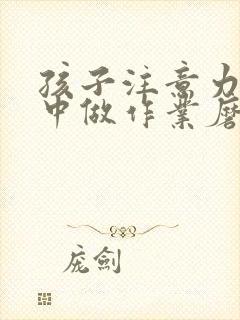 孩子注意力
中做作业磨
庞剑